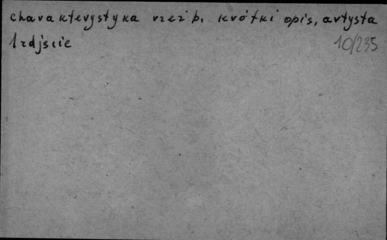 charakterystyka rzeźb. krótki opis, artysta
1 zdjęcie 10/235